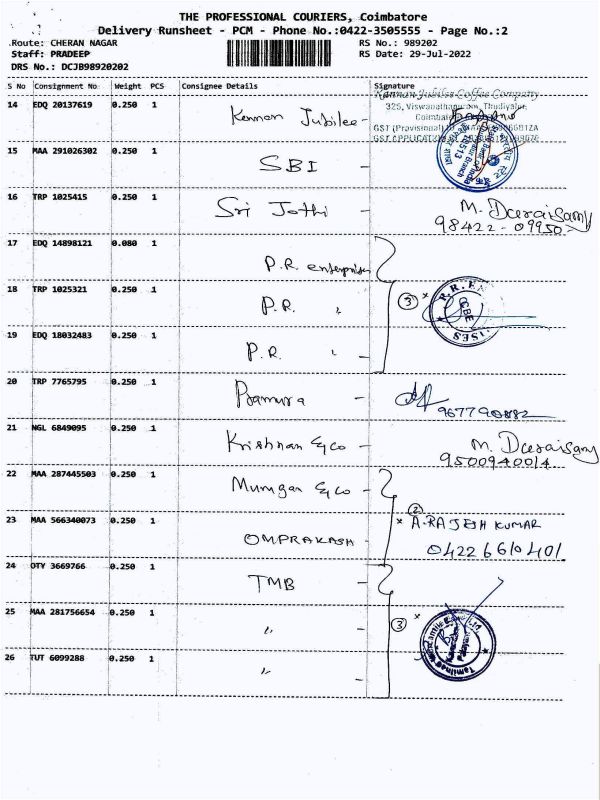 THE PROFESSIONAL COURIERS, Coimbatore
Delivery Runsheet - PCM - Phone No.:0422-3505555 - Page No.:2
Route: CHERAN NAGAR RS No.: 989202
Staff: PRADEEP RS Date: 29-Jul-2022
DRS No.: DCJB98920202
S No Consignment No Weight PCS Consignee Details Signature
Kannan Jubilee Coffee Company
14 EDQ 20137619 0.250 1 Kannan Jubilee -
325, Viswanathapuram, Thudiyalur,
15 MAA 291026302 0.250 1 SBI -
16 TRP 1025415 0.250 1 Sri Jothi - M. Duraisamy
98422-09950
17 EDQ 14898121 0.080 1 P.R. enterprises
18 TRP 1025321 0.250 1 P.R. " - 3 x
19 EDQ 18032483 0.250 1 P.R. " -
20 TRP 7765795 0.250 1 Pramura - 9677790882
21 NGL 6849095 0.250 1 Krishnan & co - M. Duraisamy
9500940014
22 MAA 287445503 0.250 1 Murugan & co -
23 MAA 566340073 0.250 1 OMPRAKASH - 2 x A. RAJESH KUMAR
0422 6610401
24 OTY 3669766 0.250 1 TMB -
25 MAA 281756654 0.250 1 " - 3 x
26 TUT 6099288 0.250 1 " -